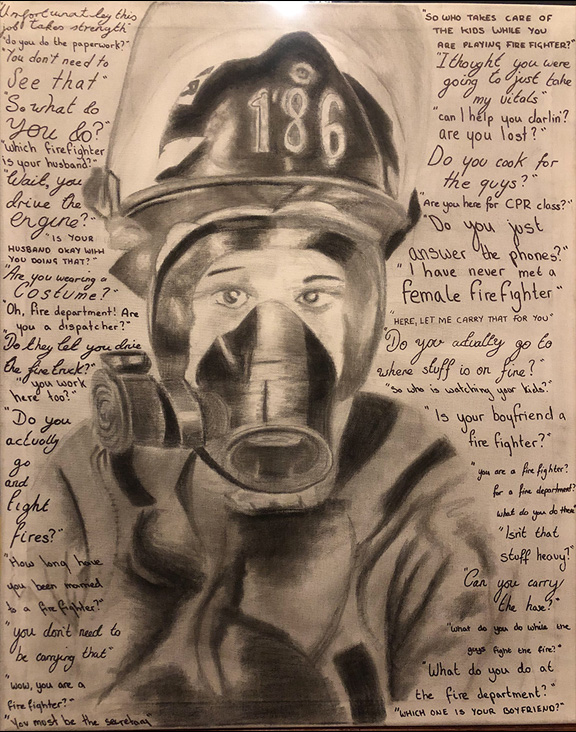 "Unfortunately this
job takes strength"
"do you do the paperwork?"
"You don't need to
See that"
"So what do
you do?"
"which firefighter
is your husband?"
"Wait, you
drive the
engine?"
"IS YOUR
HUSBAND OKAY WITH
YOU DOING THAT?"
"Are you wearing a
Costume?"
"Oh, fire department! Are
you a dispatcher?"
"Do they let you drive
the firetruck?"
"you work
here too?"
"Do you
actually
go
and
fight
fires?"
"How long have
you been married
to a firefighter?"
"you don't need to
be carrying that"
"wow, you are a
firefighter?"
"You must be the secretary"
186
"SO WHO TAKES CARE OF
THE KIDS WHILE YOU
ARE PLAYING FIREFIGHTER?"
"I thought you were
going to just take
my vitals"
"can I help you darlin'?
are you lost?"
Do you cook for
the guys?"
"Are you here for CPR class?"
"Do you just
answer the phones?"
"I have never met a
female firefighter"
"HERE, LET ME CARRY THAT FOR YOU"
"Do you actually go to
where stuff is on fire?"
"so who is watching your kids?"
"Is your boyfriend a
fire fighter?"
"you are a fire fighter?
for a fire department?
what do you do there"
"Isn't that
stuff heavy?"
"Can you carry
the hose?"
"what do you do while the
guys fight the fire?"
"What do you do at
the fire department?"
"WHICH ONE IS YOUR BOYFRIEND?"